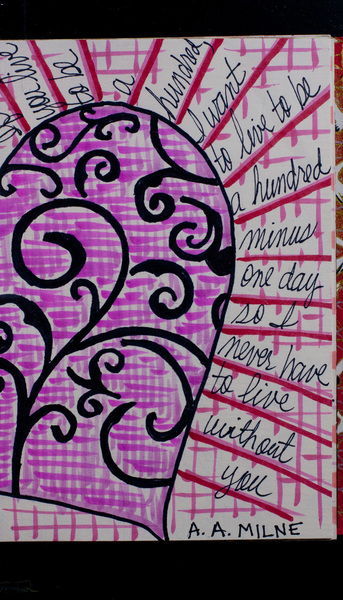 you live
to be
a
hundred
I want
to live to be
a hundred
minus
one day
so I
never have
to live
without
you
A. A. MILNE